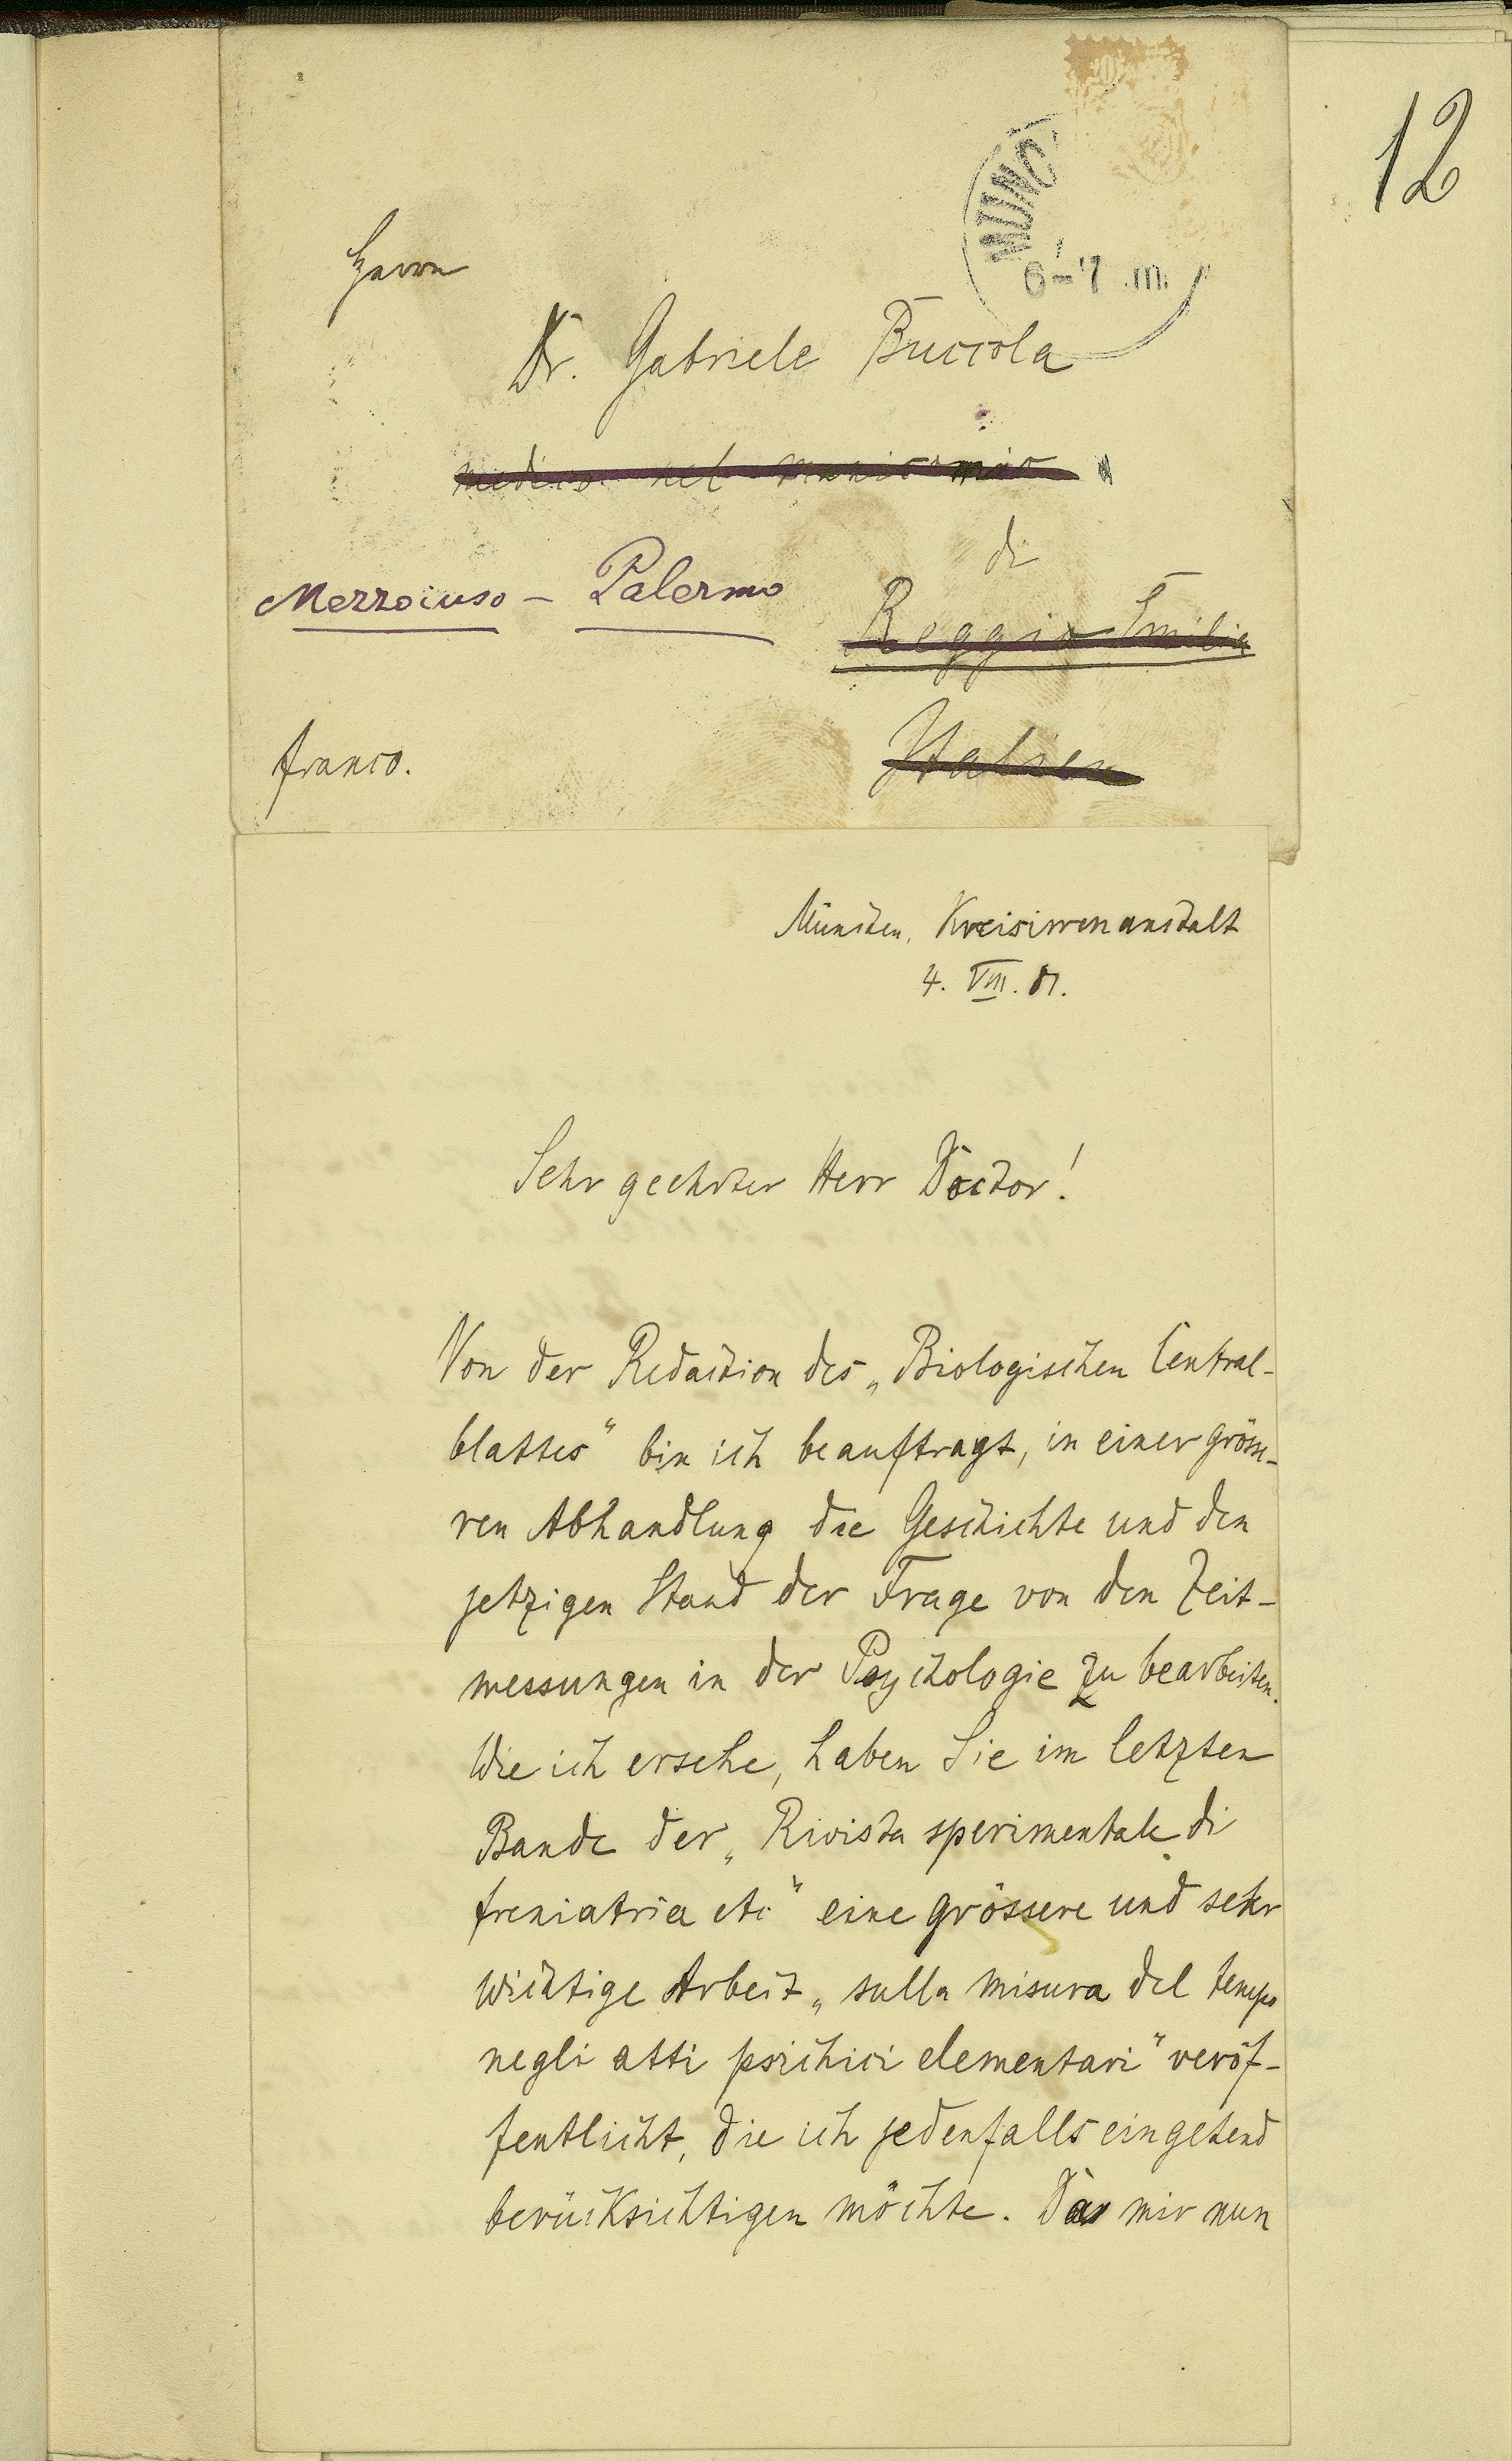 12
MÜNC
6-7 .m.
Herrn
Dr. Gabriele Buccola
medico nel manicomio
di
Mezzoiuso - Palermo
Reggio Emilia
franco.
Italien
München, Kreisirrenanstalt
4. VIII. 81.
Sehr geehrter Herr Doctor!
Von der Redaction des „Biologischen Central-
blattes“ bin ich beauftragt, in einer grösse-
ren Abhandlung die Geschichte und den
jetzigen Stand der Frage von den Zeit-
messungen in der Psychologie zu bearbeiten.
Wie ich ersehe, haben Sie im letzten
Bande der „Rivista sperimentale di
freniatria etc“ eine grössere und sehr
wichtige Arbeit „sulla misura del tempo
negli atti psichici elementari“ veröf-
fentlicht, die ich jedenfalls eingehend
berücksichtigen möchte. Da mir nun